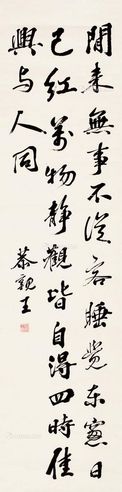 閒来無事不從容睡覺东窻日
已红萬物静觀皆自得四時佳
興与人同
恭親王